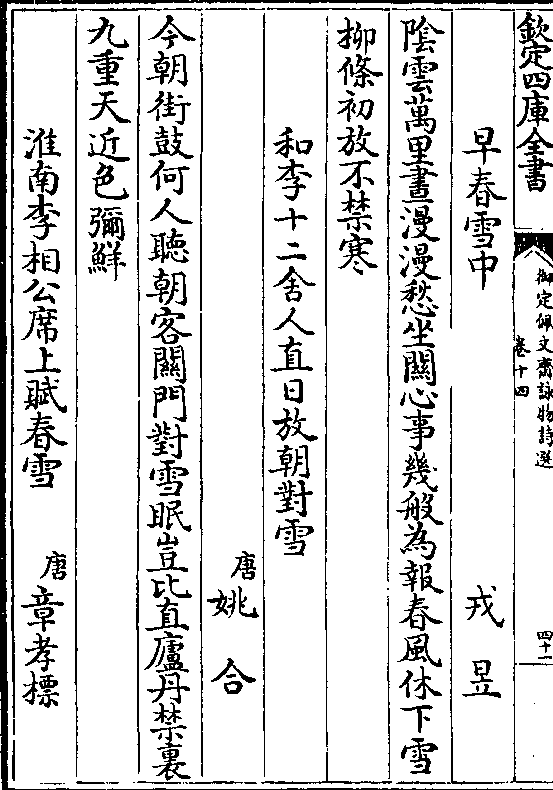 欽定四庫全書
御定佩文齋詠物詩選
卷十四
四十一
早春雪中
戎昱
陰雲萬里晝漫漫愁坐關心事幾般為報春風休下雪
柳條初放不禁寒
和李十二舍人直日放朝對雪
唐
姚合
今朝街鼓何人聽朝客關門對雪眠豈比直廬丹禁裏
九重天近色彌鮮
淮南李相公席上賦春雪
唐
章孝標